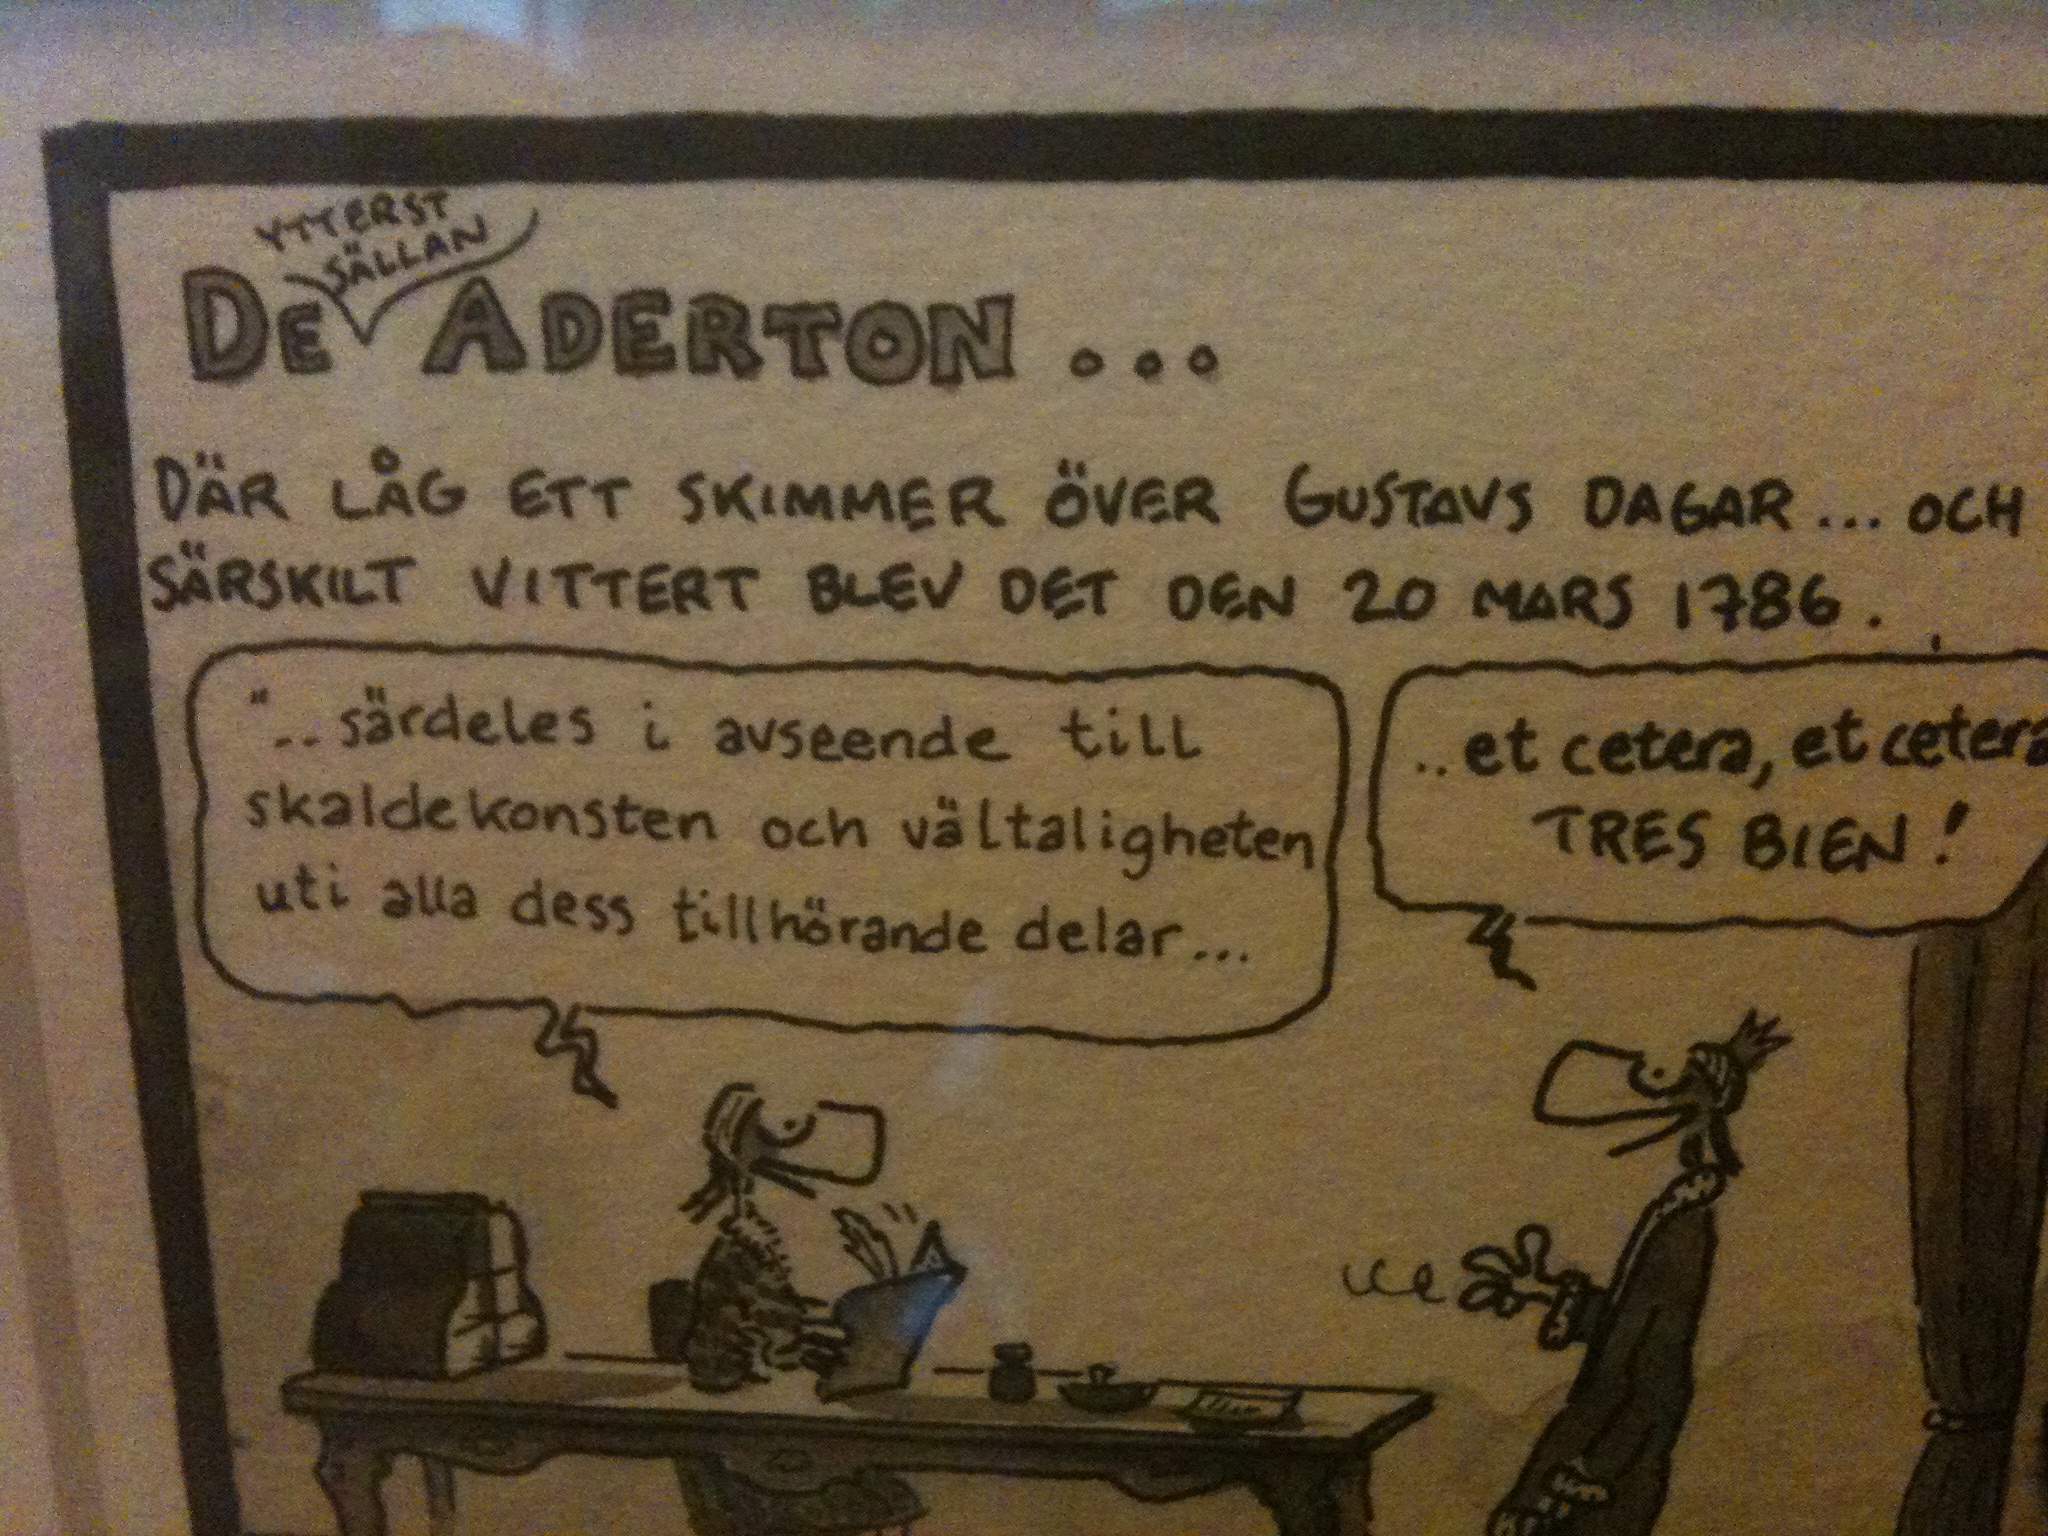 YTTERST
SÄLLAN
DE ADERTON...
DÄR LÅG ETT SKIMMER ÖVER GUSTAVS DAGAR... OCH
SÄRSKILT VITTERT BLEV DET DEN 20 MARS 1786.
"..särdeles i avseende till
skaldekonsten och vältaligheten
uti alla dess tillhörande delar...
..et cetera, et cetera
TRES BIEN!